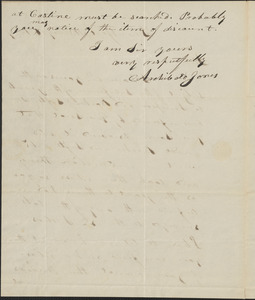 at Castine must be searched. Probably
you may notice of the item of discount.
I am Sir yours
very respectfully
Archibald Jones